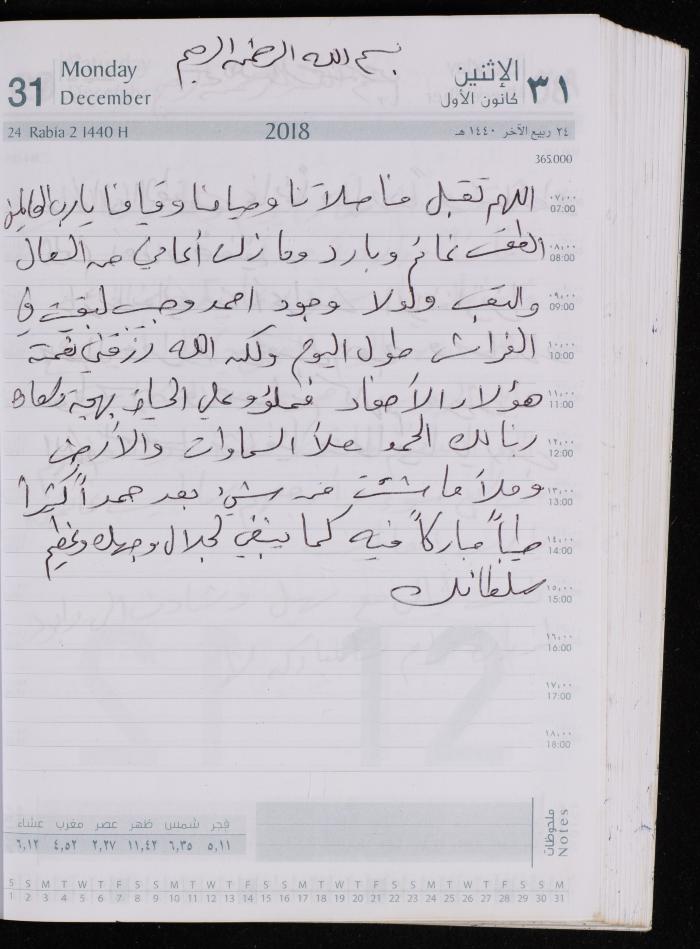 بسم الله الرحمن الرحيم
31 Monday December
الإثنين ٣١ كانون الأول
24 Rabia 2 1440 H 2018 ٢٤ ربيع الآخر ١٤٤٠ هـ
365.000
اللهم تقبل منا صلاتنا وصيامنا وقيامنا يا رب العالمين
٠٧:٠٠ 07:00
الطقس غائم وبارد وما زلت أعاني من السعال
٠٨:٠٠ 08:00
والتعب ولولا وجود احمد وحبيب لبقيت في
٠٩:٠٠ 09:00
الفراش طول اليوم ولكن الله رزقني نعمة
١٠:٠٠ 10:00
هؤلاء الأحفاد فملؤو علي الحياة بهجة وسعادة
١١:٠٠ 11:00
ربنا لك الحمد ملأ السماوات والأرض
١٢:٠٠ 12:00
وملأ ما شئت من شيء بعد حمداً كثيراً
١٣:٠٠ 13:00
طيباً مباركاً فيه كما ينبغي لجلال وجهك وعظيم
١٤:٠٠ 14:00
سلطانك
١٥:٠٠ 15:00
١٦:٠٠ 16:00
١٧:٠٠ 17:00
١٨:٠٠ 18:00
ملحوظات Notes
فجر شمس ظهر عصر مغرب عشاء
٥,١١ ٦,٣٥ ١١,٤٢ ٢,٢٧ ٤,٥٢ ٦,١٢
S S M T W T F S S M T W T F S S M T W T F S S M T W T F S S M
1 2 3 4 5 6 7 8 9 10 11 12 13 14 15 16 17 18 19 20 21 22 23 24 25 26 27 28 29 30 31